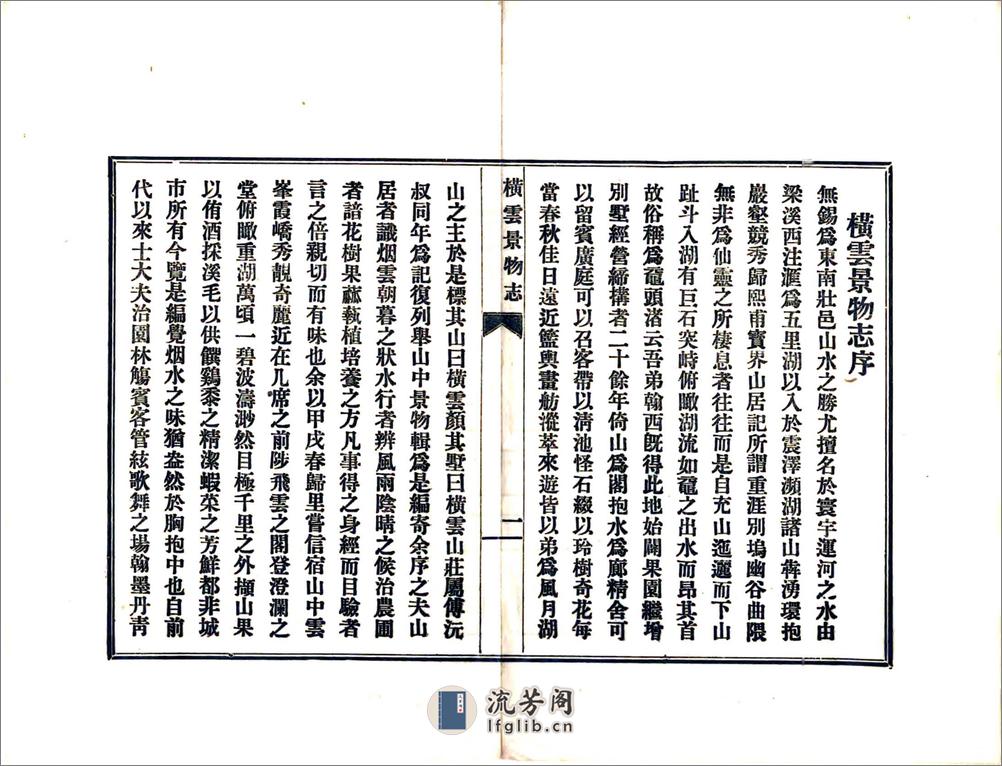 橫雲景物志序
無錫爲東南壯邑山水之勝尤擅名於寰宇運河之水由
梁溪西注滙爲五里湖以入於震澤瀕湖諸山犇湧環抱
巖壑競秀歸熙甫寶界山居記所謂重涯別塢幽谷曲隈
無非爲仙靈之所棲息者往往而是自充山迤邐而下山
趾斗入湖有巨石突峙俯瞰湖流如黿之出水而昂其首
故俗稱爲黿頭渚云吾弟翰西旣得此地始闢果園繼增
別墅經營締搆者二十餘年倚山爲閣抱水爲廊精舍可
以留賓廣庭可以召客帶以淸池怪石綴以玲樹奇花每
當春秋佳日遠近籃輿畫舫漎萃來遊皆以弟爲風月湖
橫雲景物志
一
山之主於是標其山曰橫雲顏其墅曰橫雲山莊屬傅沅
叔同年爲記復列舉山中景物輯爲是編寄余序之夫山
居者識烟雲朝暮之狀水行者辨風雨陰晴之候治農圃
者諳花樹果蓏執植培養之方凡事得之身經而目驗者
言之倍親切而有味也余以甲戌春歸里嘗信宿山中雲
峯霞嶠秀靚奇麗近在几席之前陟飛雲之閣登澄瀾之
堂俯瞰重湖萬頃一碧波濤渺然目極千里之外擷山果
以侑酒採溪毛以供饌鷄黍之精潔蝦菜之芳鮮都非城
市所有今覽是編覺烟水之味猶盎然於胸抱中也自前
代以來士大夫治園林觴賓客管絃歌舞之場翰墨丹靑
流芳阁
lfglib.cn